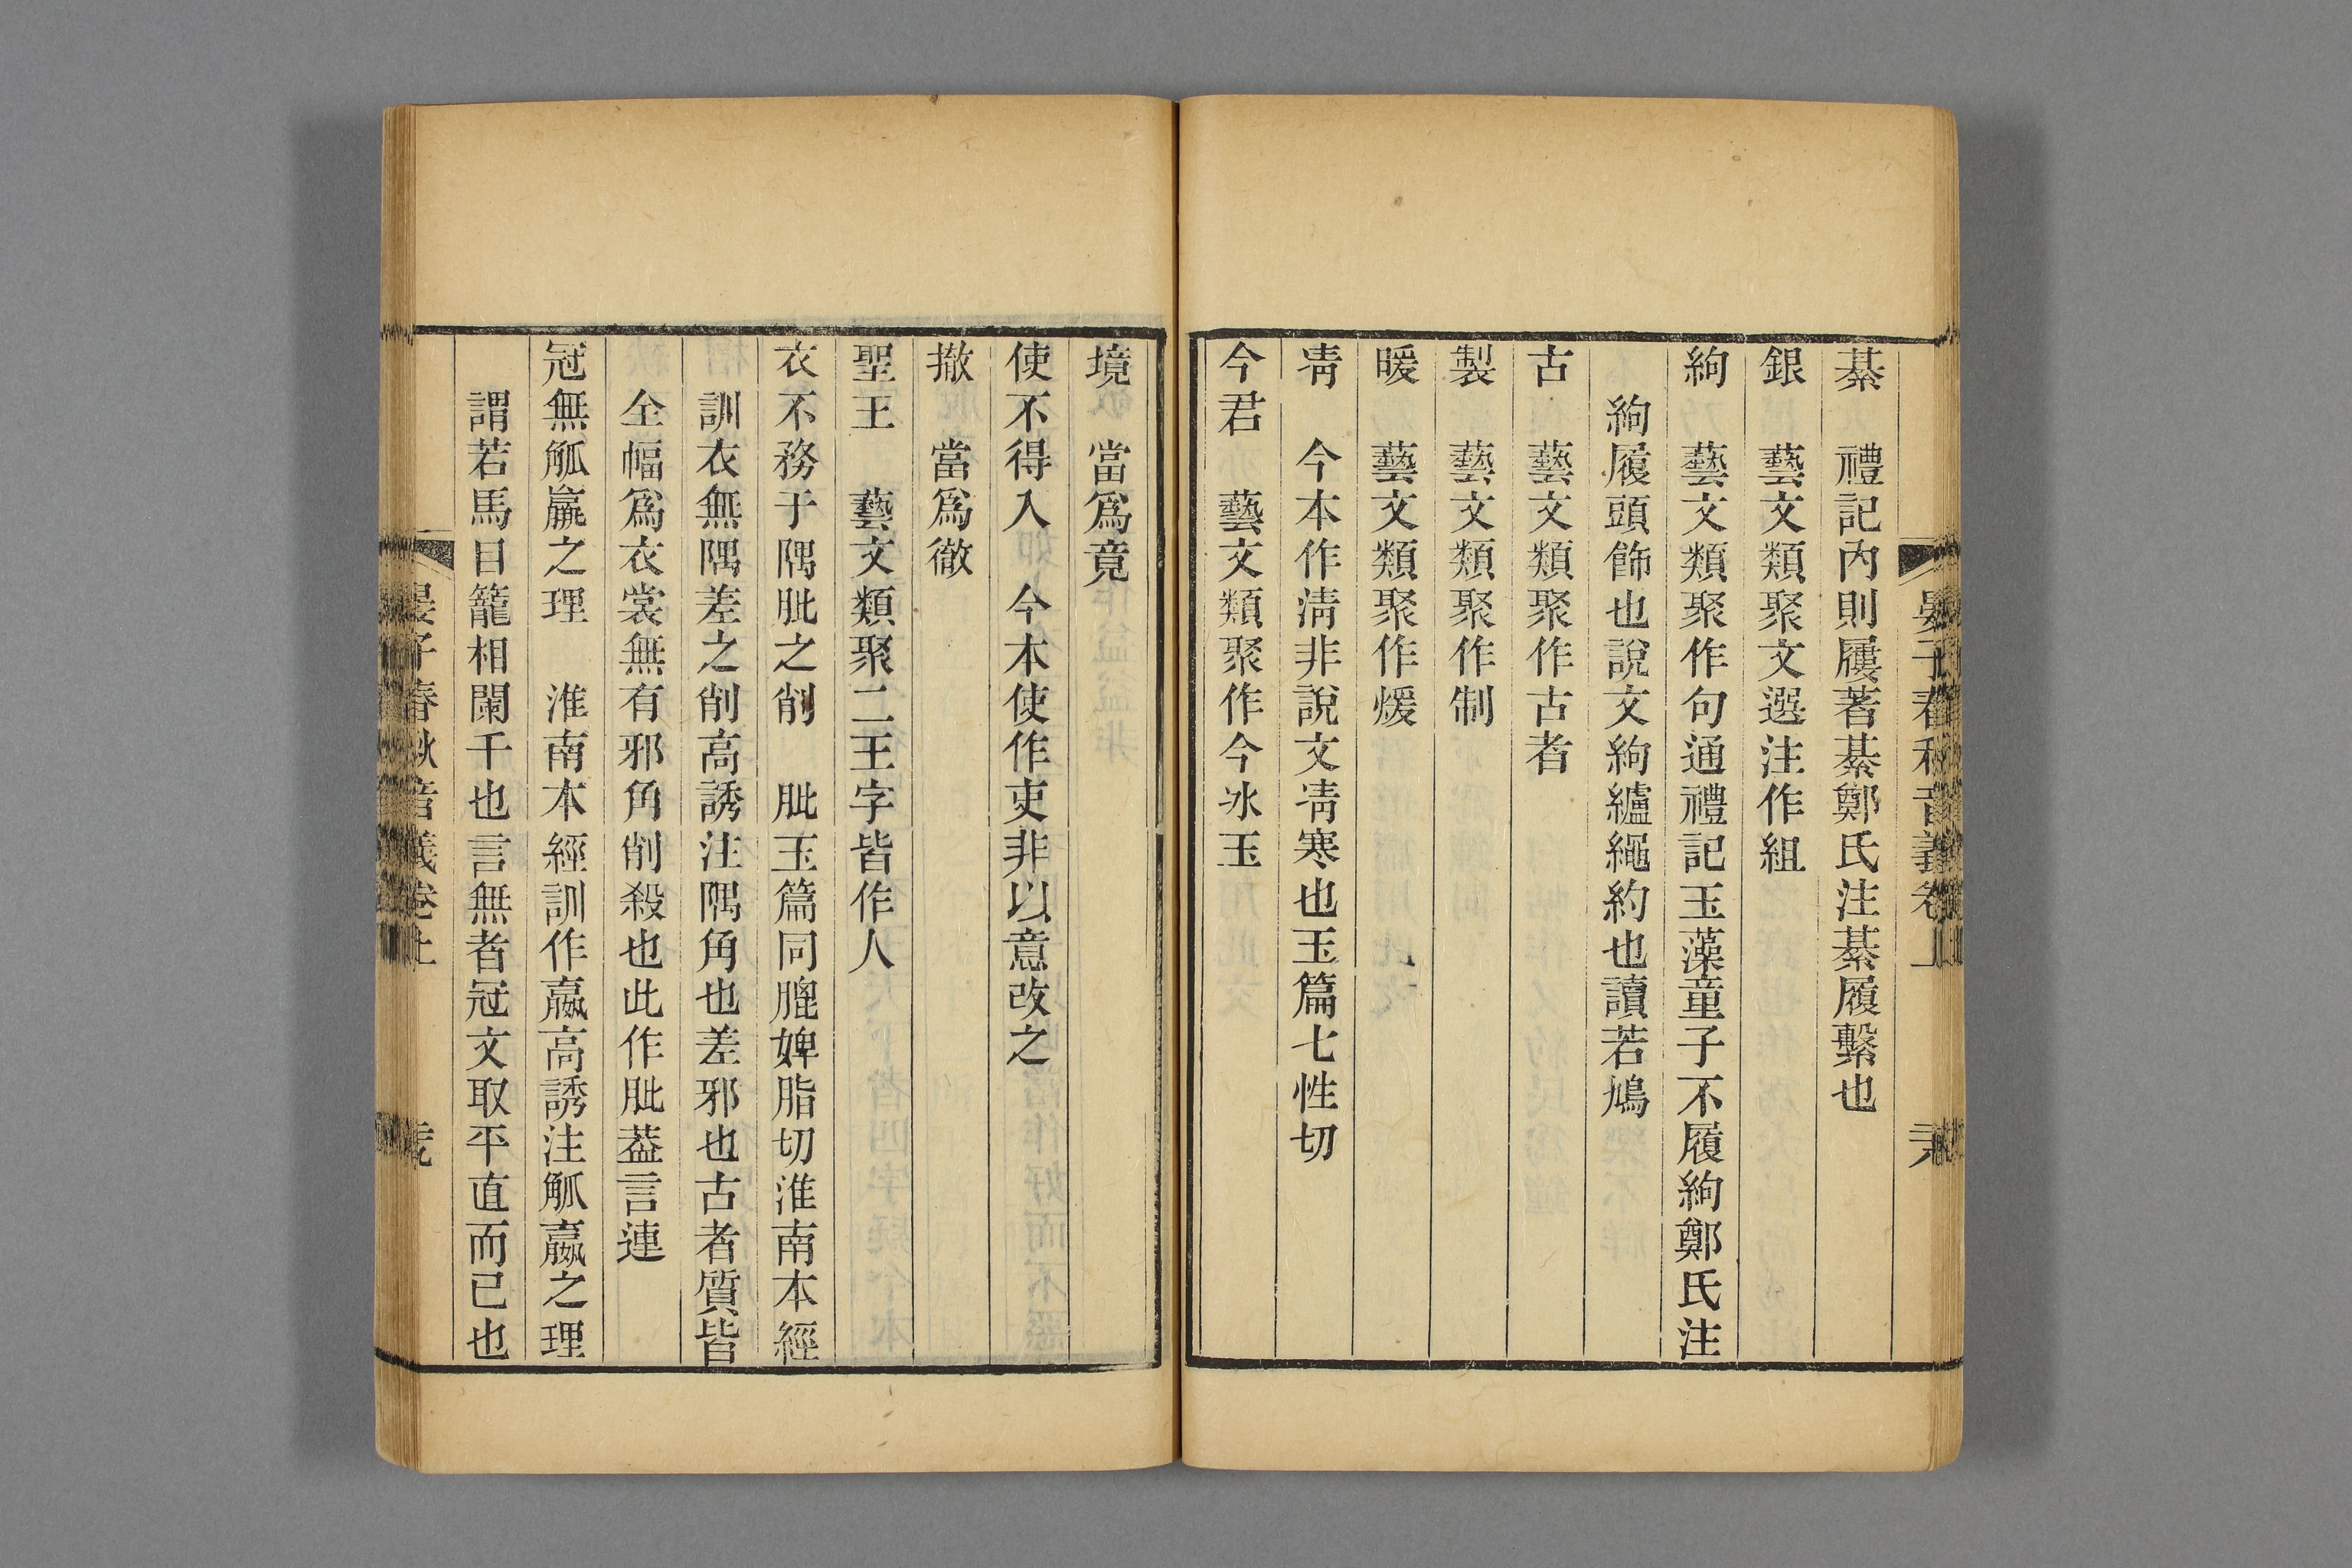 晏子春秋音義卷上
綦　禮記內則屨著綦鄭氏注綦履繫也
銀　藝文類聚文選注作組
絇　藝文類聚作句通禮記玉藻童子不履絇鄭氏注
絇履頭飾也說文絇纑繩約也讀若鳩
古　藝文類聚作古者
製　藝文類聚作制
暖　藝文類聚作煖
凊　今本作清非說文凊寒也玉篇七性切
今君　藝文類聚作今冰玉
境　當爲竟
使不得入　今本使作吏非以意改之
撤　當爲徹
聖王　藝文類聚二王字皆作人
衣不務于隅肶之削　肶玉篇同膍婢脂切淮南本經
訓衣無隅差之削高誘注隅角也差邪也古者質皆
全幅爲衣裳無有邪角削殺也此作肶葢言連
冠無觚臝之理　淮南本經訓作蠃高誘注觚蠃之理
謂若馬目籠相闌干也言無者冠文取平直而已也
晏子春秋音義卷上